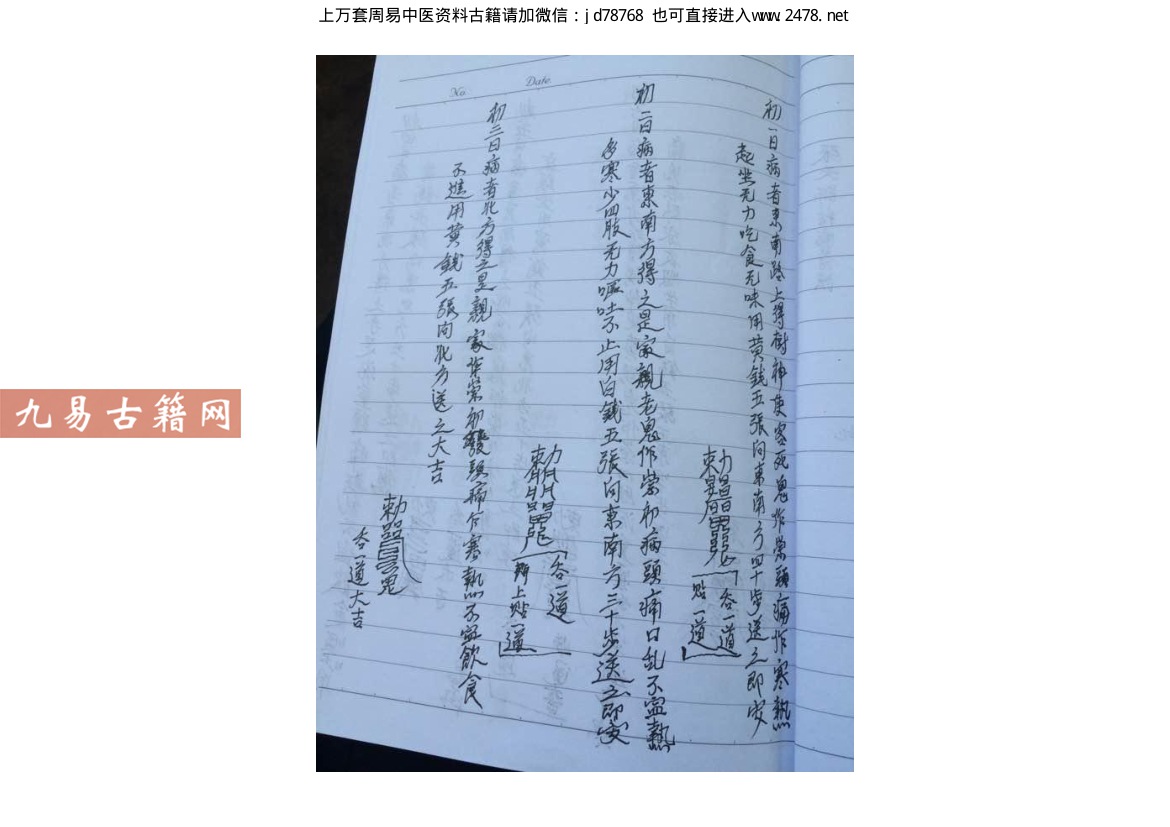 上万套周易中医资料古籍请加微信：jd78768 也可直接进入www.2478.net
九易古籍网
No
Date
初一日病者東南路上得樹神使客死鬼作祟頭痛作寒熱
起坐无力吃食无味用黄錢五張向東南方四十步送之即安
勅
吞一道
贴一道
初二日病者東南方得之是家親老鬼作祟初病頭痛口乱不寍熱
多寒少四肢无力嘔吐不止用白錢五張向東南方三十步送之即安
勅
吞一道
上贴一道
初三日病者北方得之是親家作祟初發頭痛作寒熱不寍飲食
不進用黄錢五張向北方送之大吉
勅
吞一道大吉